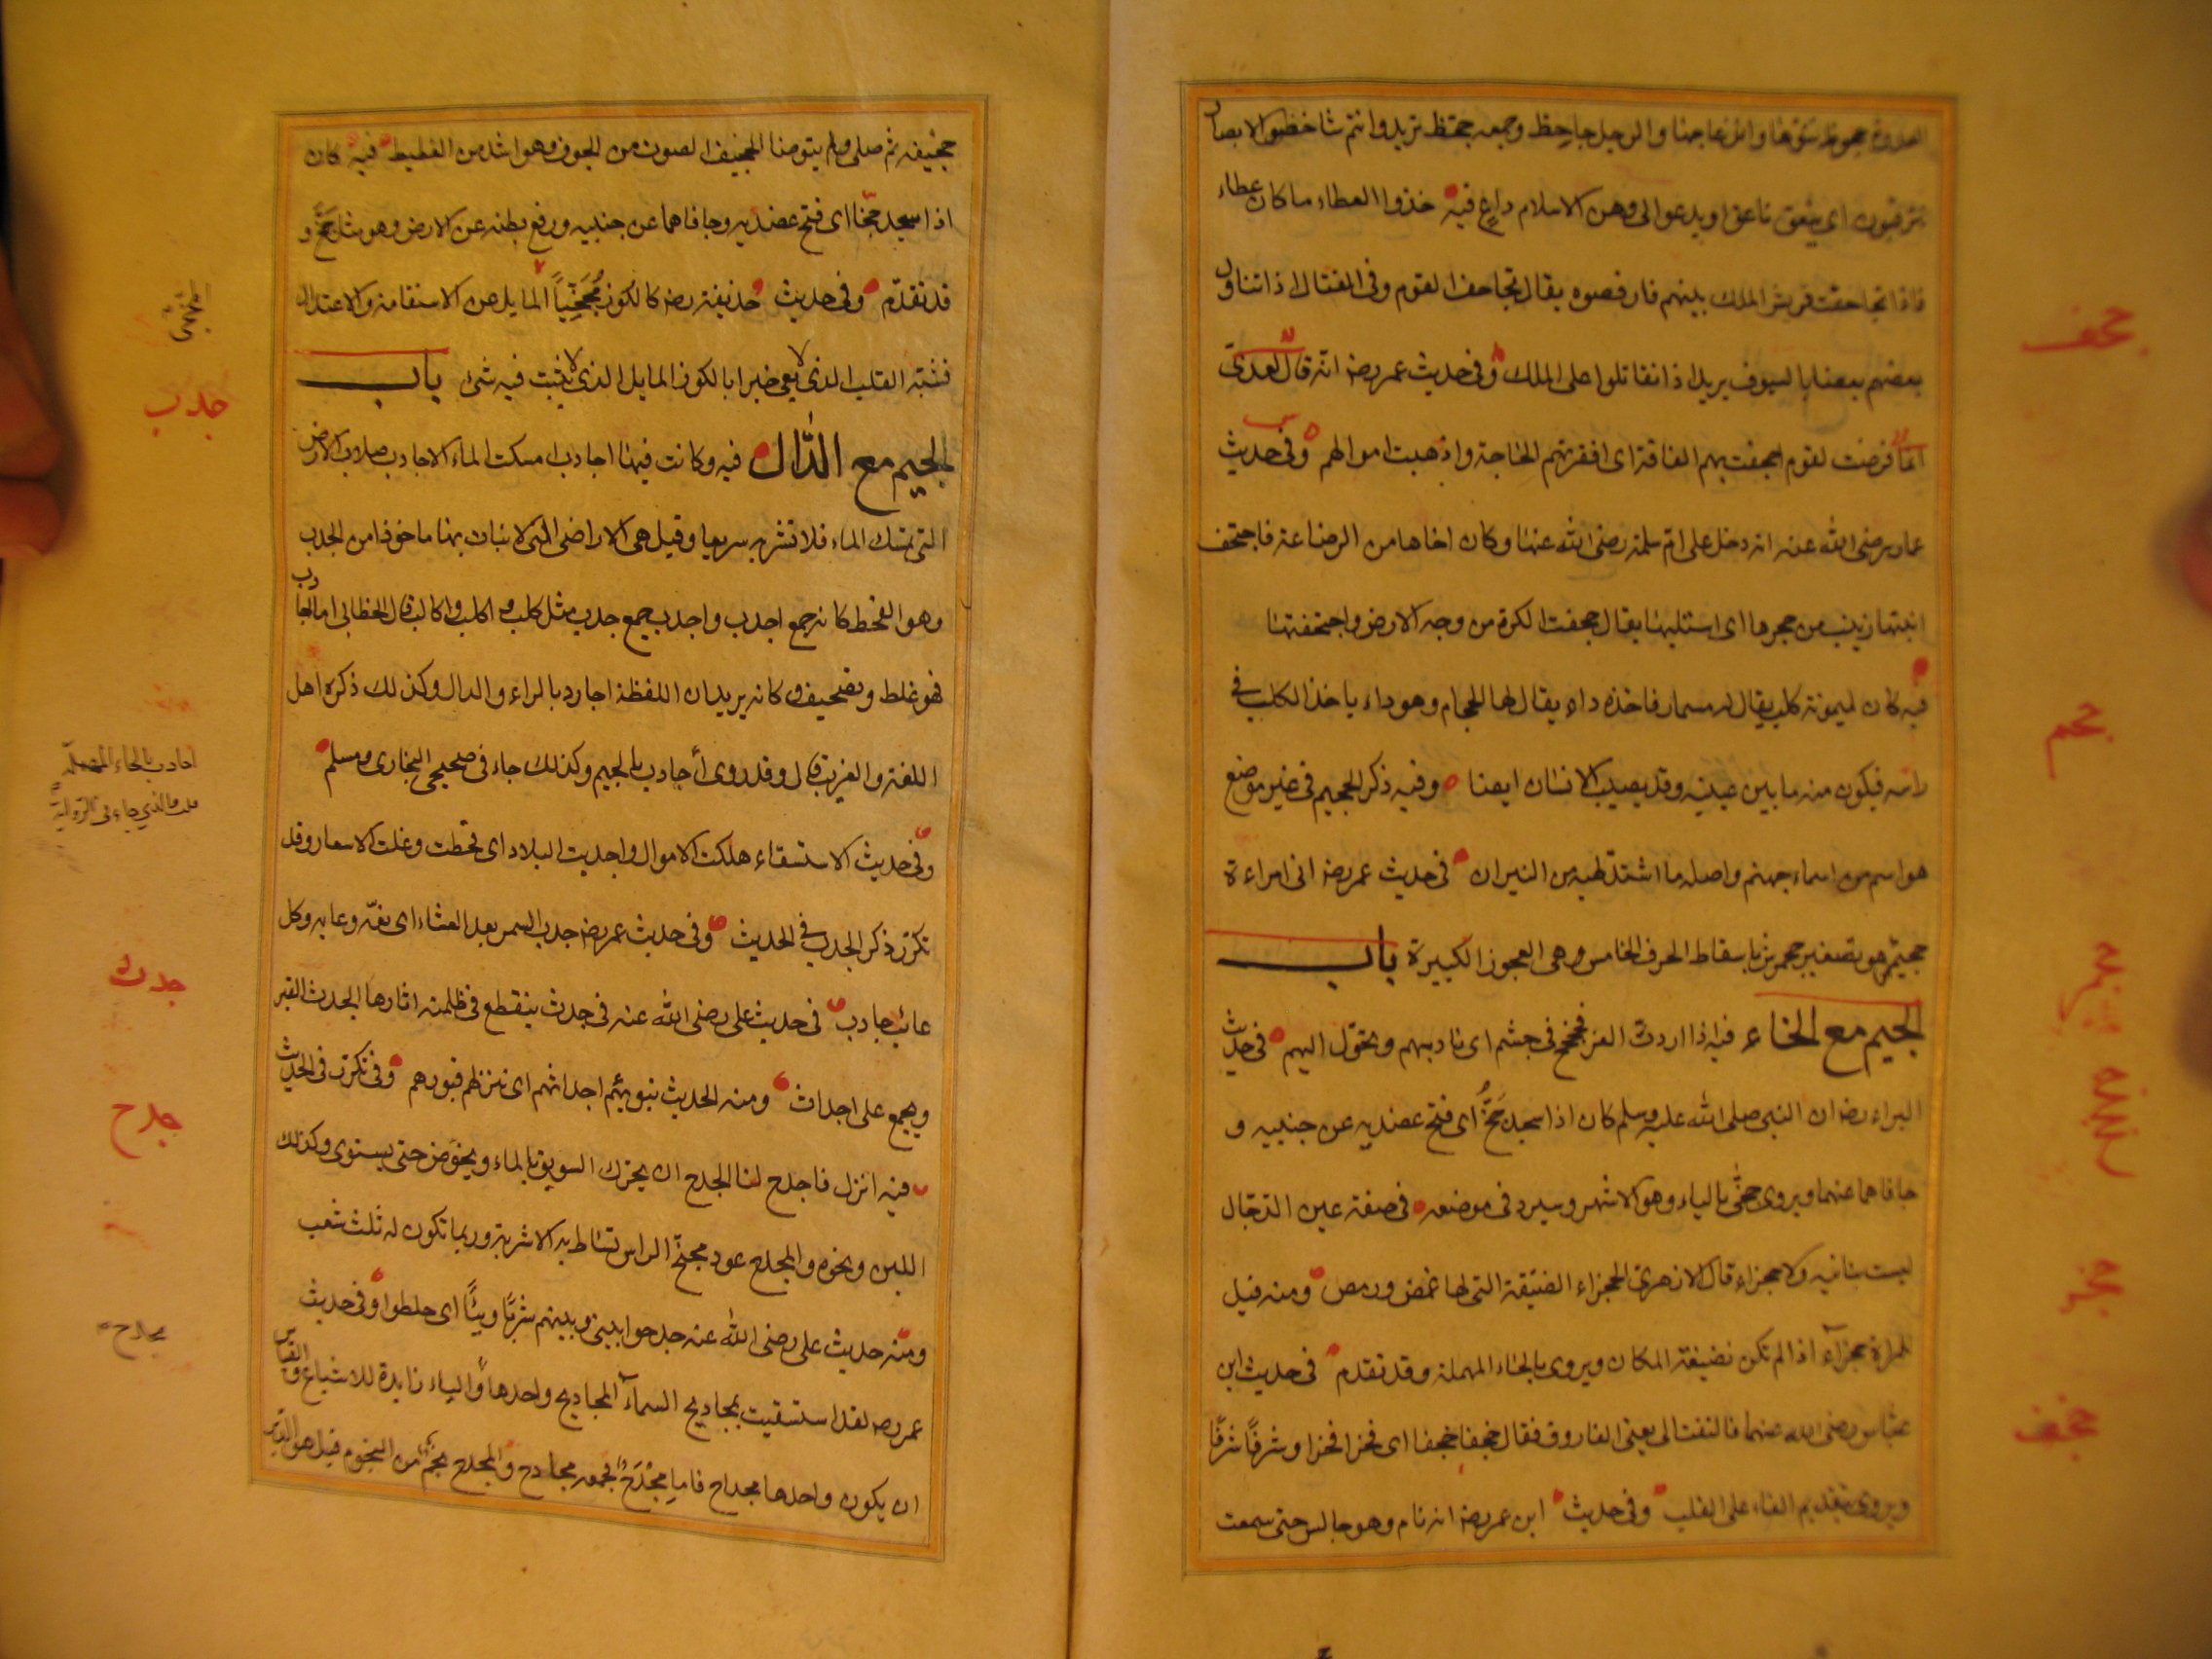 العدوة جحوظ شوقها وانزعاجها والرجل جاحظ وجمعه جحظ تريد وانتم شاخصوا الابصار
تترقبون اى ينعق ناعق او يدعو الى وهن الاسلام داع فيه خذوا العطاء ما كان عطاء
فاذا تجاحفت قريش الملك بينهم فارفضوه يقال تجاحف القوم وفى القتال اذا تناول
بعضهم بعضا بالسيوف يريد اذا تقاتلوا على الملك وفى حديث عمر رضه انه قال لعدى
انما فرضت لقوم اجحفت بهم الفاقة اى افقرتهم الحاجة واذهبت اموالهم وفى حديث
عمار رضى الله عنه انه دخل على ام سلمة رضى الله عنها وكان اخاها من الرضاعة فاجتحف
ابنتها زينب من حجرها اى استلبها يقال جحفت الكرة من وجه الارض واجتحفتها
فيه كان لميمونة كلب يقال له مسمار فاخذه داء يقال لها الجحام وهو داء ياخذ الكلب فى
راسه فيكوى منه ما بين عينيه وقد يصيب الانسان ايضا وفيه ذكر الجحيم فى غير موضع
هو اسم من اسماء جهنم واصله ما اشتد لهبه من النيران فى حديث عمر رضه انى امراءة
جحيمر هو تصغير جحمرش باسقاط الحرف الخامس وهى العجوز الكبيرة باب
الجيم مع الخاء فيه اذا اردت العز فجخجخ فى جشم اى ناد بهم وتحول اليهم فى حديث
البراء رضه ان النبى صلى الله عليه وسلم كان اذا سجد جخ اى فتح عضديه عن جنبيه و
جافاهما عنهما ويروى جخى بالياء وهو الاشهر وسيرد فى موضعه فى صفة عين الدجال
ليست بناتية ولا جخراء قال الازهرى الجخراء الضيقة التى لها غمص ورمص ومنه قيل
للمراة جخراء اذا لم تكن نضيفة المكان ويروى بالحاء المهملة وقد تقدم فى حديث ابن
عباس رضى الله عنهما فالتفت الى يعنى الفاروق فقال جخفا جخفا اى فخرا فخرا وشرفا شرفا
ويروى بتقديم الفاء على القلب وفى حديث ابن عمر رضه انه نام وهو جالس حتى سمعت
جحف
جحم
جحمر
جخجخ
جخر
جخف
جخيفه ثم صلى ولم يتوضا الجخيف الصوت من الجوف وهو اشد من الغطيط فيه كان
اذا سجد جخا اى فتح عضديه وجافاهما عن جنبيه ورفع بطنه عن الارض وهو مثل جخ و
قد تقدم وفى حديث حذيفة رضه كالكوز مجخيا المايل عن الاستقامة والاعتدال
فشبه القلب الذى لا يعى خيرا بالكوز المايل الذى لا يثبت فيه شئ باب
الجيم مع الدال فيه وكانت فيها اجادب امسكت الماء الاجادب صلاب الارض
التى تمسك الماء فلا تشربه سريعا وقيل هى الاراضى التى لا نبات بها ماخوذ من الجدب
وهو القحط كانه جمع اجدب واجدب جمع جدب مثل كلب و اكلب واكالب قال الخطابى اما اجادب
فهو غلط وتصحيف وكانه يريد ان اللفظة اجارد بالراء والدال وكذلك ذكره اهل
اللغة والغريب قال وقد روى أحادب بالجيم وكذلك جاء فى صحيحى البخارى ومسلم
وفى حديث الاستسقاء هلكت الاموال واجدبت البلاد اى قحطت وغلت الاسعار وقد
تكرر ذكر الجدب فى الحديث وفى حديث عمر رضه جدب السمر بعد العشاء اى نمه وعابه وكل
عائب جادب فى حديث على رضى الله عنه فى جدث ينقطع فى ظلمته اثارها الجدث القبر
ويجمع على اجداث ومنه الحديث نبوئهم اجداثهم اى ننزلهم قبورهم وقد تكرر فى الحديث
فيه انزل فاجدح لنا الجدح ان يحرك السويق بالماء ويخوض حتى يستوى وكذلك
اللبن ونحوه والمجدح عود مجنح الراس تساط به الاشربة وربما تكون له ثلث شعب
ومنه حديث على رضى الله عنه جدحوا بينى وبينهم شربا وبيئا اى خلطوا وفى حديث
عمر رضه لقد استسقيت بمجاديح السماء المجاديح واحدها والياء زايدة للاشباع والقياس
ان يكون واحدها مجداح فاما مجدح فجمعه مجادح والمجدح نجم من النجوم قيل هو الدبران
جدب
احادب بالحاء المهملة
قلت والذي جاء فى الرواية
جدث
جدح
مجدح